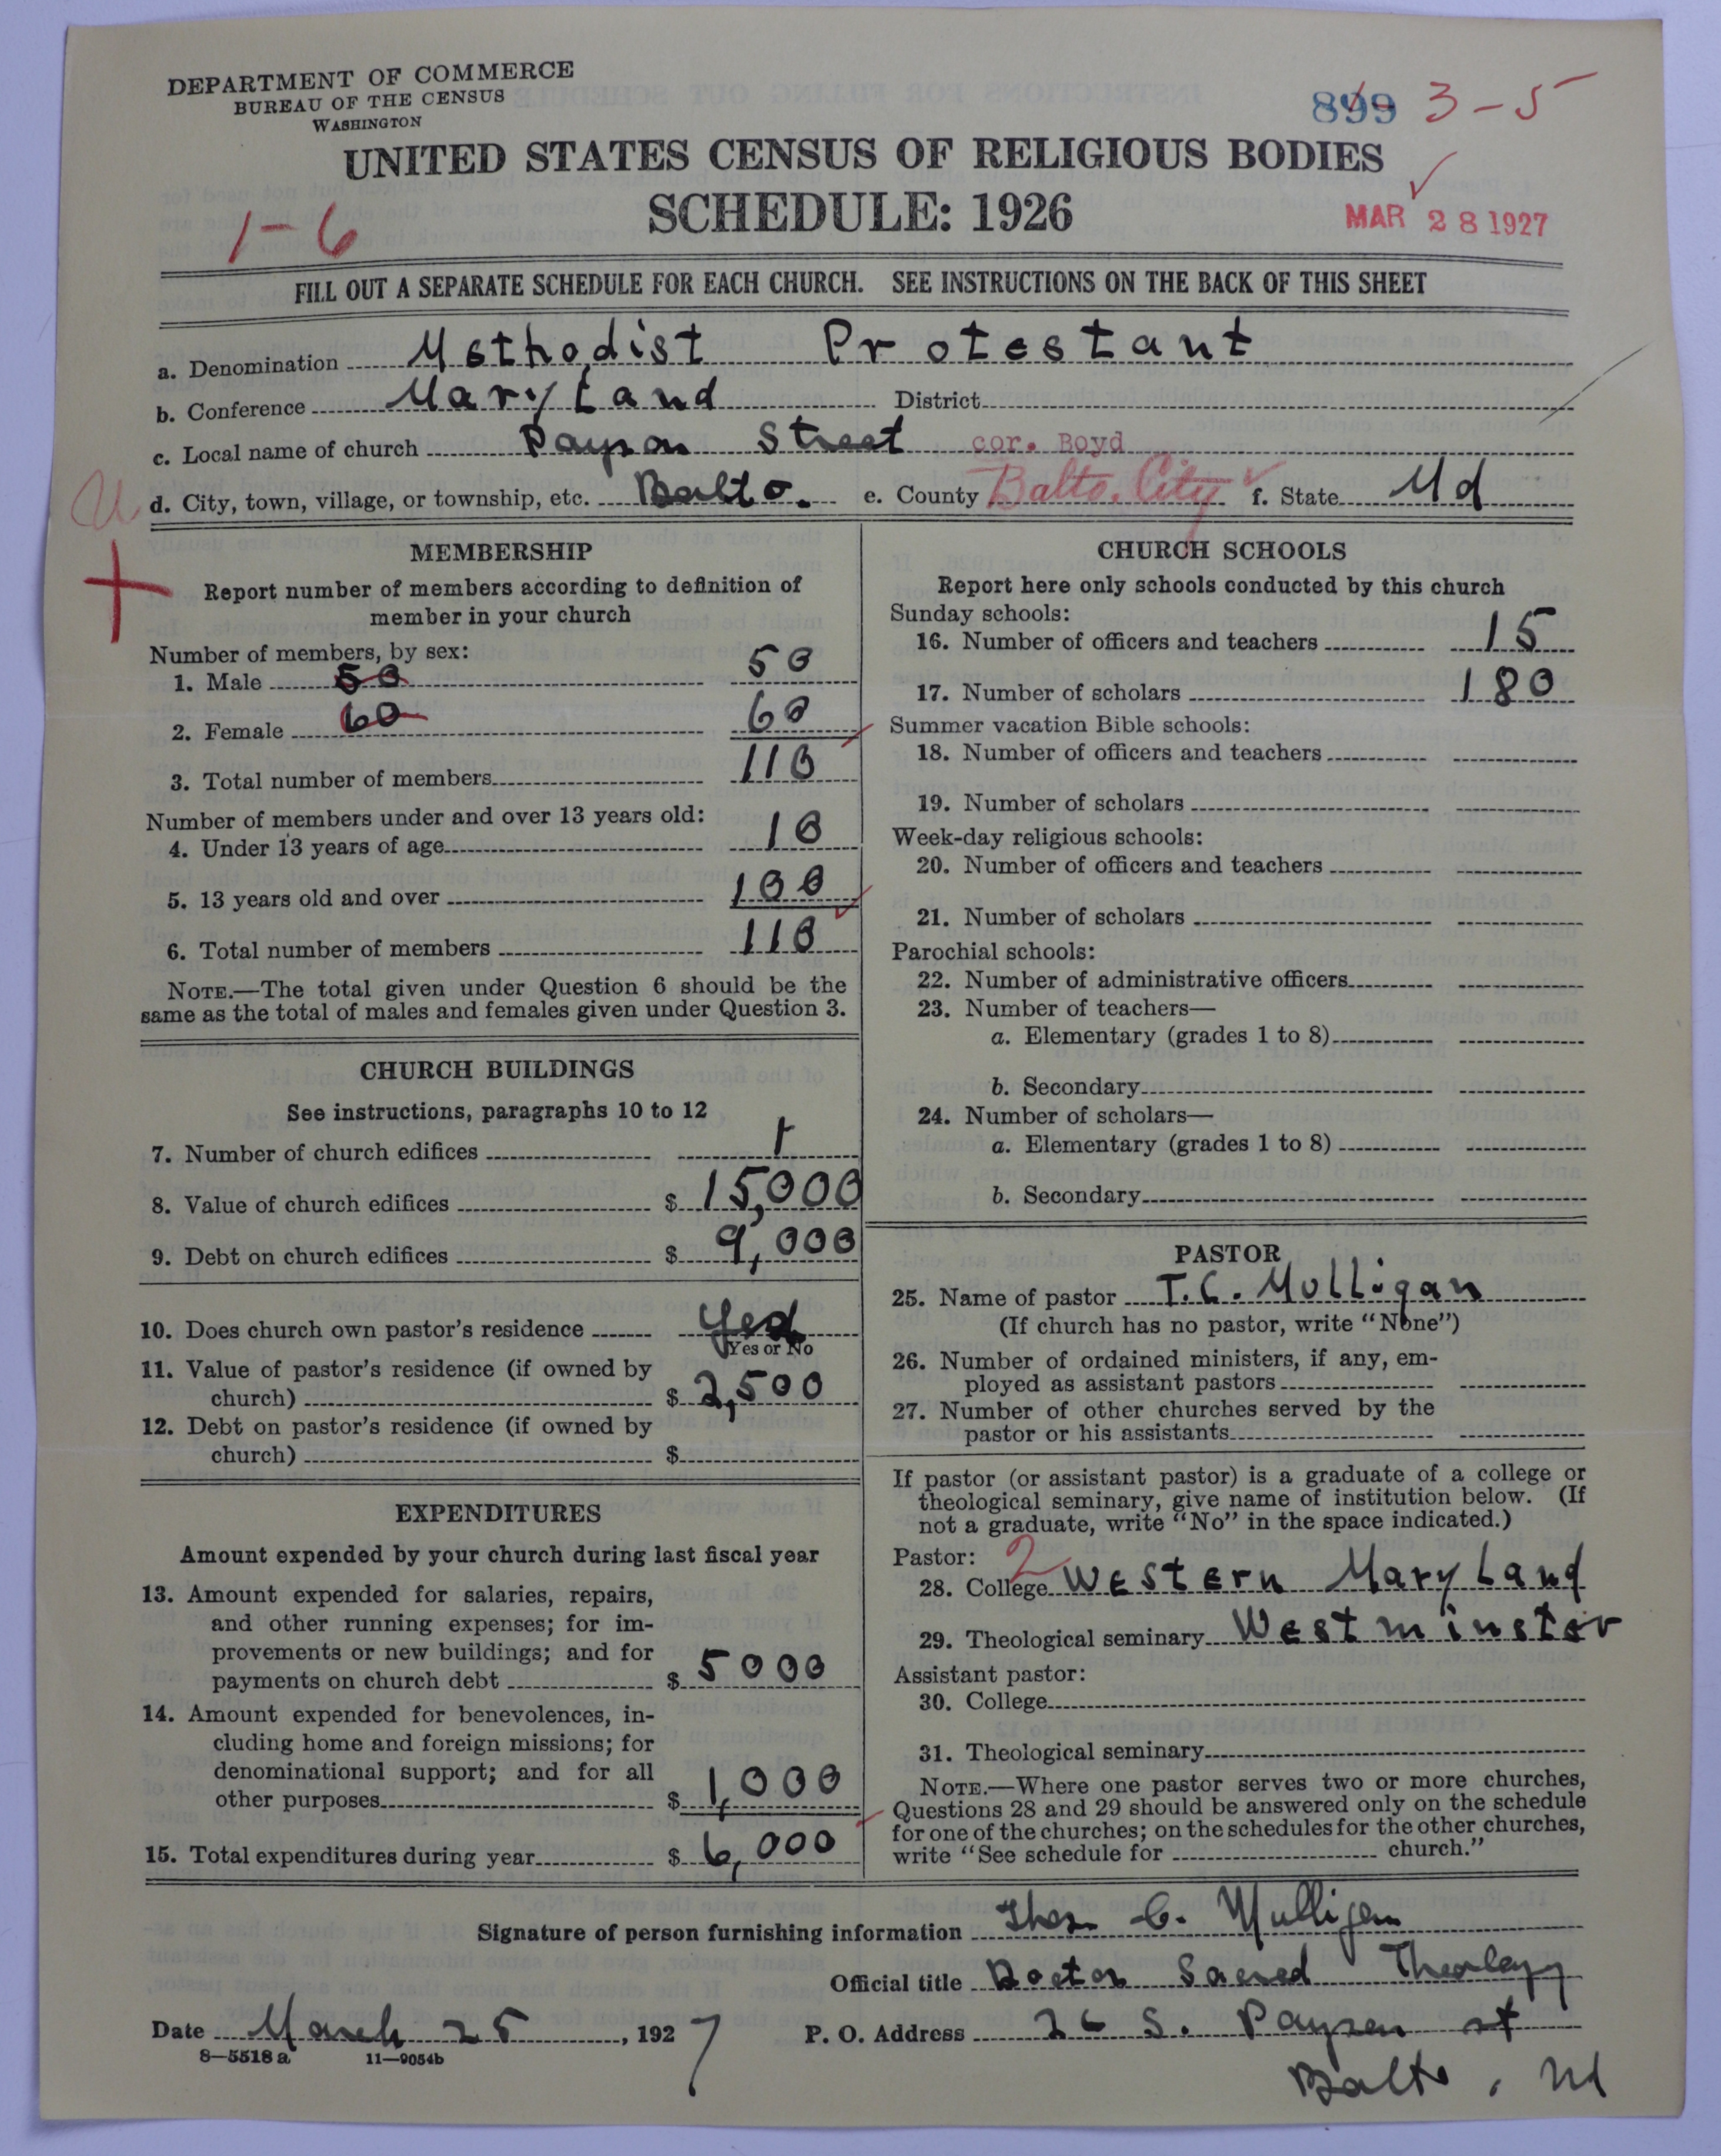 DEPARTMENT OF COMMERCE
BUREAU OF THE CENSUS
WASHINGTON
899 3-5
UNITED STATES CENSUS OF RELIGIOUS BODIES
SCHEDULE: 1926
1-6
MAR 28 1927
FILL OUT A SEPARATE SCHEDULE FOR EACH CHURCH. SEE INSTRUCTIONS ON THE BACK OF THIS SHEET
a. Denomination Methodist Protestant
b. Conference MaryLand District
c. Local name of church Payson Street cor. Boyd
d. City, town, village, or township, etc. Balto. e. County Balto. City f. State Md
MEMBERSHIP
Report number of members according to definition of
member in your church
Number of members, by sex:
1. Male 50 50
2. Female 60 60
3. Total number of members 110
Number of members under and over 13 years old:
4. Under 13 years of age 10
5. 13 years old and over 100
6. Total number of members 110
NOTE.—The total given under Question 6 should be the
same as the total of males and females given under Question 3.
CHURCH BUILDINGS
See instructions, paragraphs 10 to 12
7. Number of church edifices 1
8. Value of church edifices $ 15,000
9. Debt on church edifices $ 9,000
10. Does church own pastor's residence Yes
Yes or No
11. Value of pastor's residence (if owned by
church) $ 2,500
12. Debt on pastor's residence (if owned by
church) $
EXPENDITURES
Amount expended by your church during last fiscal year
13. Amount expended for salaries, repairs,
and other running expenses; for im-
provements or new buildings; and for
payments on church debt $ 5000
14. Amount expended for benevolences, in-
cluding home and foreign missions; for
denominational support; and for all
other purposes $ 1,000
15. Total expenditures during year $ 6,000
CHURCH SCHOOLS
Report here only schools conducted by this church
Sunday schools:
16. Number of officers and teachers 15
17. Number of scholars 180
Summer vacation Bible schools:
18. Number of officers and teachers
19. Number of scholars
Week-day religious schools:
20. Number of officers and teachers
21. Number of scholars
Parochial schools:
22. Number of administrative officers
23. Number of teachers—
a. Elementary (grades 1 to 8)
b. Secondary
24. Number of scholars—
a. Elementary (grades 1 to 8)
b. Secondary
PASTOR
25. Name of pastor T.C. Mulligan
(If church has no pastor, write "None")
26. Number of ordained ministers, if any, em-
ployed as assistant pastors
27. Number of other churches served by the
pastor or his assistants
If pastor (or assistant pastor) is a graduate of a college or
theological seminary, give name of institution below. (If
not a graduate, write "No" in the space indicated.)
Pastor: 2
28. College Western MaryLand
29. Theological seminary Westminster
Assistant pastor:
30. College
31. Theological seminary
NOTE.—Where one pastor serves two or more churches,
Questions 28 and 29 should be answered only on the schedule
for one of the churches; on the schedules for the other churches,
write "See schedule for church."
Signature of person furnishing information Thos. C. Mulligan
Official title Doctor Sacred Theology
Date March 25, 1927 P. O. Address 26 S. Payson st
8-5518a 11-9054b
Balto, Md